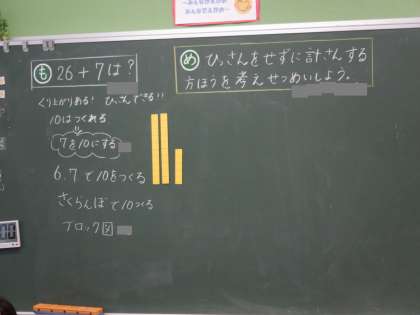 〜みんながえがお
みんなでえがお〜
も 26+7は?
め ひっさんをせずに計さんする
方ほうを考えせつめいしよう。
くり上がりある! ひっさんできる!!
10はつくれる
7を10にする
6.7で10をつくる
さくらんぼで10つくる
ブロック図